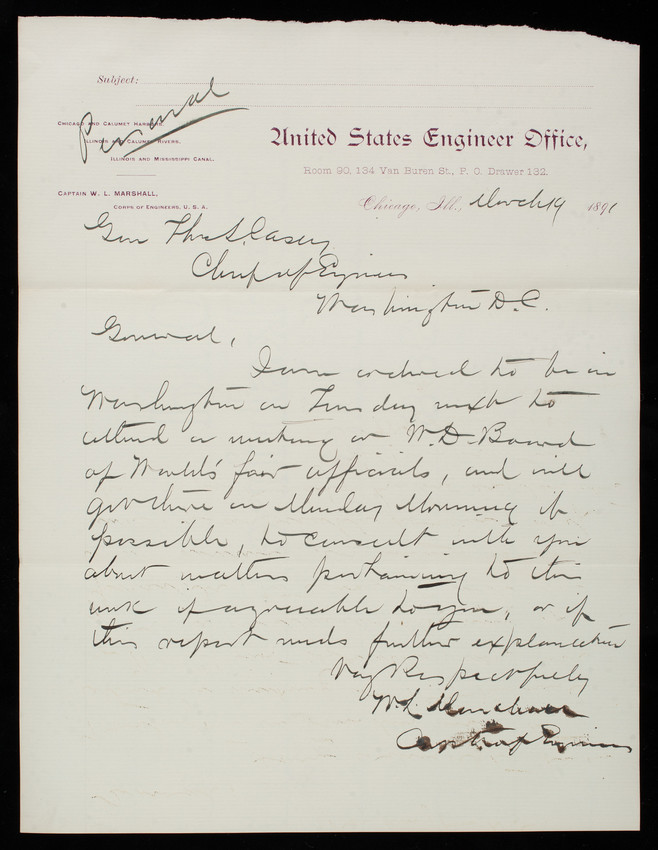 Subject:
Personal
Chicago and Calumet Harbors,
Illinois and Calumet Rivers,
Illinois and Mississippi Canal.
Captain W. L. Marshall,
Corps of Engineers, U. S. A.
United States Engineer Office,
Room 90, 134 Van Buren St., P. O. Drawer 132.
Chicago, Ill., March 19 1891
Gen Thos L. Casey
Chief of Engineers
Washington D.C.
General,
I am ordered to be in
Washington on Tuesday next to
attend a meeting of W.D. Board
of World's fair officials, and will
go there on Monday Morning if
possible, to consult with you
about matters pertaining to this
work if agreeable to you, or if
this report needs further explanation
Very Respectfully
W. L. Marshall
Capt of Engineers